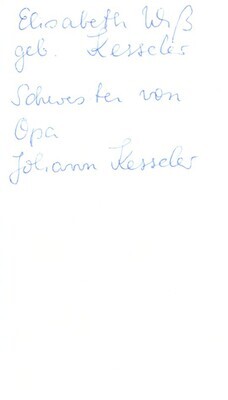 Elisabeth Wiß
geb. Kesseler
Schwester von
Opa
Johann Kesseler